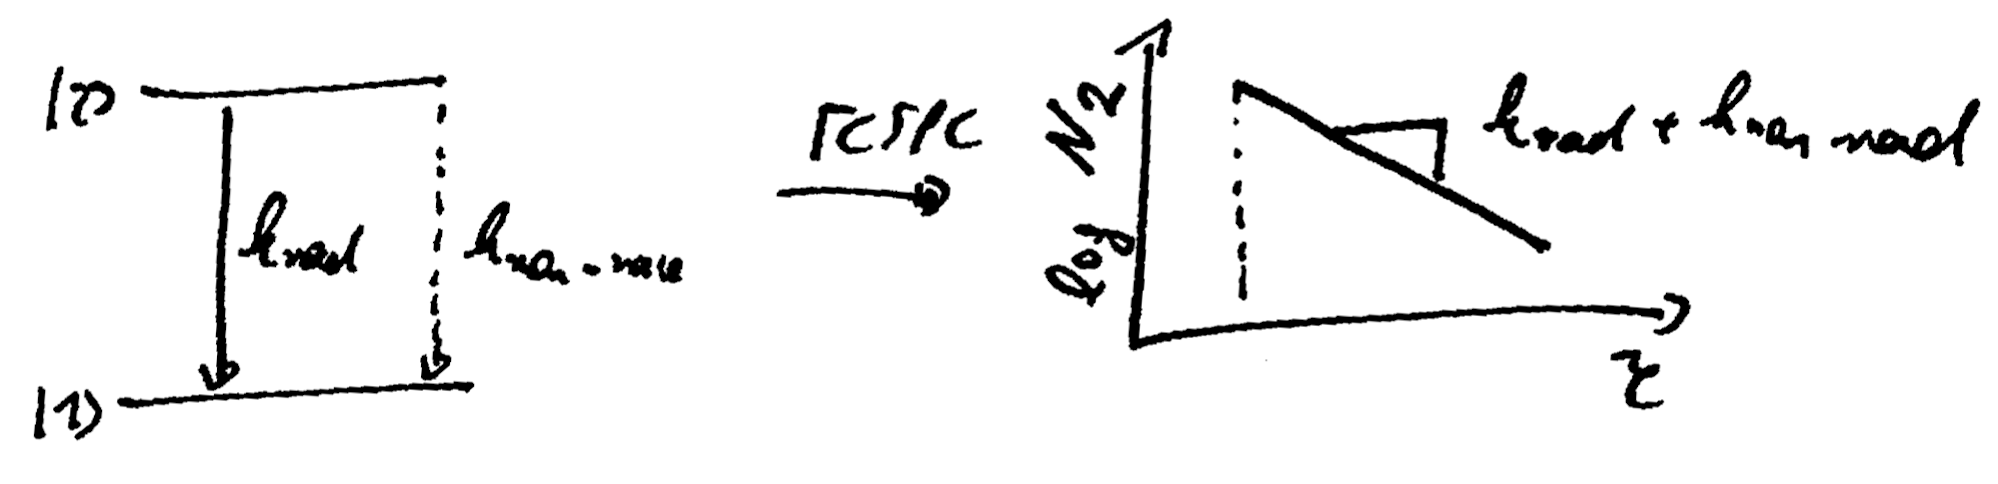 |2⟩
k_rad
k_non-rad
|1⟩
TCSPC
log N_2
k_rad + k_non rad
τ